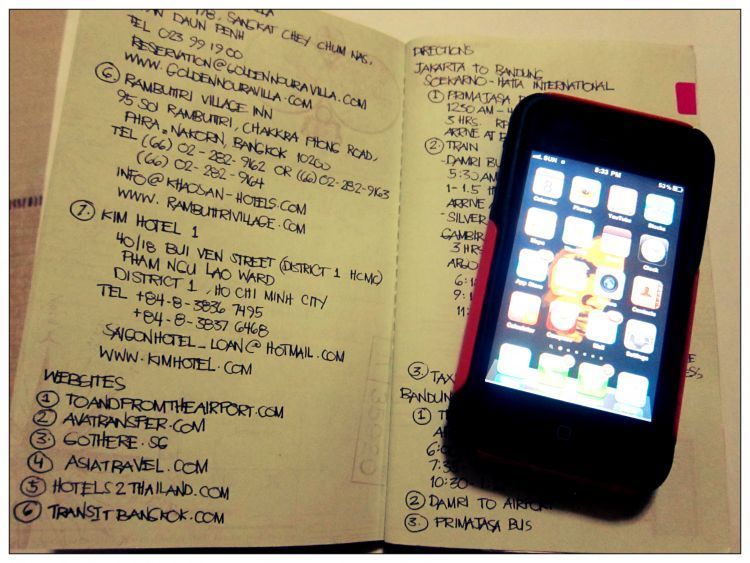 178, SANGKAT CHEY CHUM NAS,
DAUN PENH
TEL 023 99 19 00
RESERVATION@GOLDENNOURAVILLA.COM
WWW.GOLDENNOURAVILLA.COM
6. RAMBUTTRI VILLAGE INN
95 SOI RAMBUTTRI, CHAKKRA PHONG ROAD,
PHRA-NAKORN, BANGKOK 10200
TEL (66) 02-282-9162 OR (66) 02-282-9163
(66) 02-282-9164
INFO@KHAOSAN-HOTELS.COM
WWW.RAMBUTTRIVILLAGE.COM
7. KIM HOTEL 1
40/18 BUI VEN STREET (DISTRICT 1 HCMC)
PHAM NGU LAO WARD
DISTRICT 1, HO CHI MINH CITY
TEL +84-8-3836 7495
+84-8-3837 6468
SAIGONHOTEL_LOAN@HOTMAIL.COM
WWW.KIMHOTEL.COM
WEBSITES
1 TOANDFROMTHEAIRPORT.COM
2 AVATRANSFER.COM
3. GOTHERE.SG
4 ASIATRAVEL.COM
5 HOTELS2THAILAND.COM
6 TRANSITBANGKOK.COM
DIRECTIONS
JAKARTA TO BANDUNG
SOEKARNO-HATTA INTERNATIONAL
1 PRIMAJASA
1230 AM -
3 HRS. RP
ARRIVE AT
2 TRAIN
-DAMRI BU
5:30 AM
1-1.5 H
ARRIVE
-SILVER
GAMBIR
3 HRS
ARGO
6:
9:
11:
3. TAX
BANDUNG
1 T
6:0
7:3
10:30-
2 DAMRI TO AIRPORT
3. PRIMAJASA BUS
SUN 8:33 PM 53%
Calendar Photos YouTube Stocks
Maps Clock
App Store Contacts
Calculator Compass Mail Settings